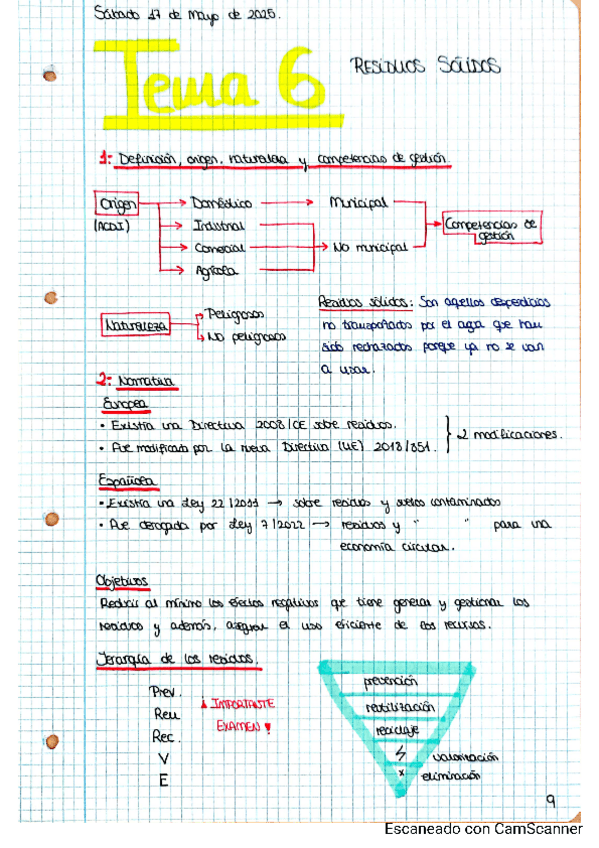 Sábado 17 de Mayo de 2025.
Tema 6 RESIDUOS SÓLIDOS
1: Definición, origen, naturaleza y competencias de gestión
Origen Doméstico Municipal
(ACDI) Industrial Competencias de gestión
Comercial No municipal
Agrícola
Naturaleza Peligrosos
No peligrosos
Residuos sólidos: Son aquellos desperdicios
no transportados por el agua que han
sido rechazados porque ya no se van
a usar.
2: Normativa
Europea
• Existía una Directiva 2008/CE sobre residuos.
• Fue modificada por la nueva Directiva (UE) 2018/851. } 2 modificaciones.
Española
• Existía una Ley 22/2011 → sobre residuos y suelos contaminados
• Fue derogada por Ley 7/2022 → residuos y " " para una
economía circular.
Objetivos
Reducir al mínimo los efectos negativos que tiene generar y gestionar los
residuos y además, asegurar el uso eficiente de los recursos.
Jerarquía de los residuos.
Prev.
Reu
Rec.
V
E
¡IMPORTANTE
EXAMEN!
prevención
reutilización
reciclaje
valorización
x eliminación
9
Escaneado con CamScanner